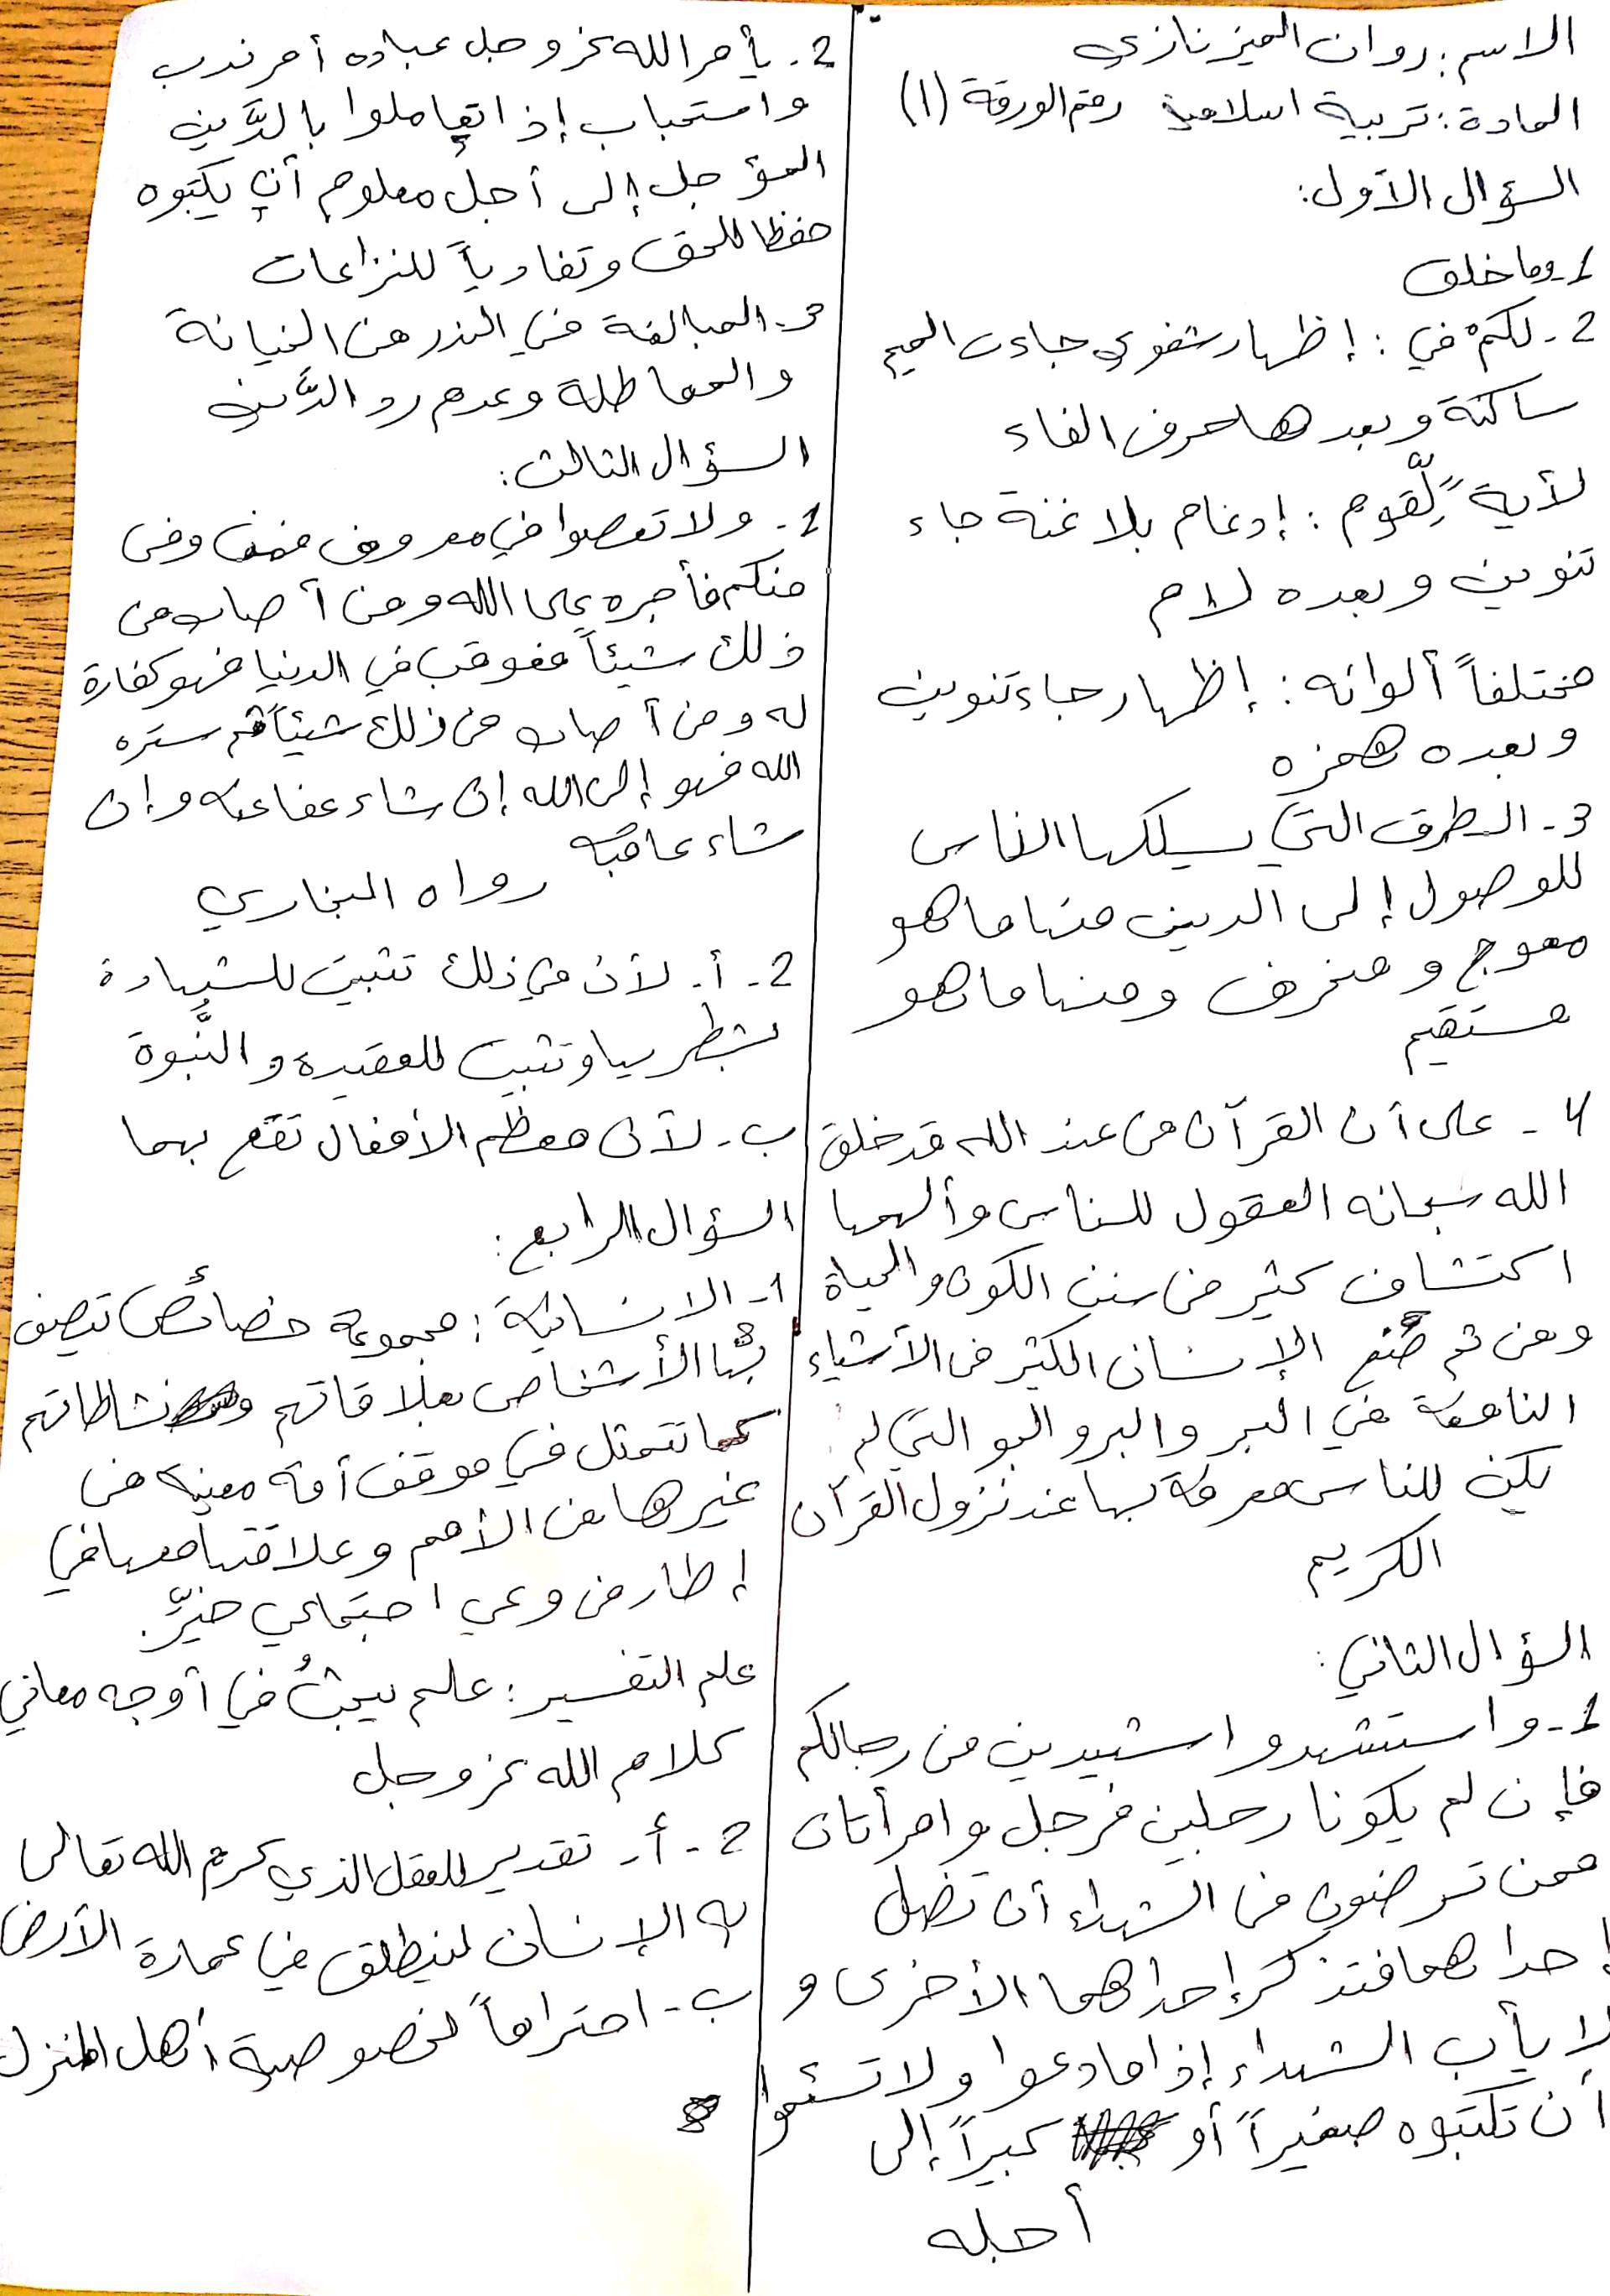 الاسم: روان الميزنازي
المادة: تربية اسلامية رقم الورقة (1)
السؤال الأول:
1- وما خلف
2- لكمْ في: إظهار شفوي جاءت الميم
ساكنة وبعدها حرف الفاء
لأيةً لِّقوم: إدغام بلا غنة جاء
تنوين وبعده لام
مختلفاً ألوانه: إظهار جاء تنوين
وبعده همزه
3- الطرق التي يسلكها الناس
للوصول إلى الدين منها ما هو
معوج و منحرف ومنها ما هو
مستقيم
4- على أن القرآن من عند الله قد خلق
الله سبحانه العقول للناس وألهمها
اكتشاف كثير من سنن الكون والحياة
ومن ثم صُنع الإنسان الكثير من الأشياء
النافعة في البر والبر والجو التي لم
تكن للناس معرفة بها عند نزول القرآن
الكريم
السؤال الثاني:
1- واستشهدوا شهيدين من رجالكم
فإن لم يكونا رجلين فرجل وامرأتان
ممن ترضون من الشهداء أن تضل
إحداهما فتذكر إحداهما الأخرى و
لا يأب الشهداء إذا ما دعوا ولا تسئموا
أن تكتبوه صغيراً أو كبيراً إلى
أجله
2- يأمر الله عز وجل عباده أمر ندب
واستحباب إذا تعاملوا بالدَّين
المؤجل إلى أجل معلوم أن يكتبوه
حفظا للحق وتفادياً للنزاعات
3- المبالغة في الحذر من الخيانة
والمماطلة وعدم رد الدَّين
السؤال الثالث:
1- ولا تعصوا في معروف فمن وفى
منكم فأجره على الله ومن أصاب من
ذلك شيئاً فعوقب في الدنيا فهو كفارة
له ومن أصاب من ذلك شيئاً ثم ستره
الله فهو إلى الله إن شاء عفا عنه وإن
شاء عاقبه رواه البخاري
2- أ- لأن في ذلك تثبيت للشهادة
بشطريها وتثبيت للعقيدة والنُّبوة
ب- لأن معظم الأفعال تقع بهما
السؤال الرابع:
1- الانسانية: مجموعة خصائص تتصف
بها الأشخاص بعلاقاتهم ونشاطاتهم
كما تتمثل في موقف أمة معينه من
غيرها من الأمم وعلاقتها معها في
إطار من وعي اجتماعي خيِّر.
علم التفسير: علم يبحثُ في أوجه معاني
كلام الله عز وجل
2- أ- تقدير للعقل الذي كرم الله تعالى
به الإنسان لينطلق في عمارة الأرض
ب- احتراماً لخصوصية أهل المنزل